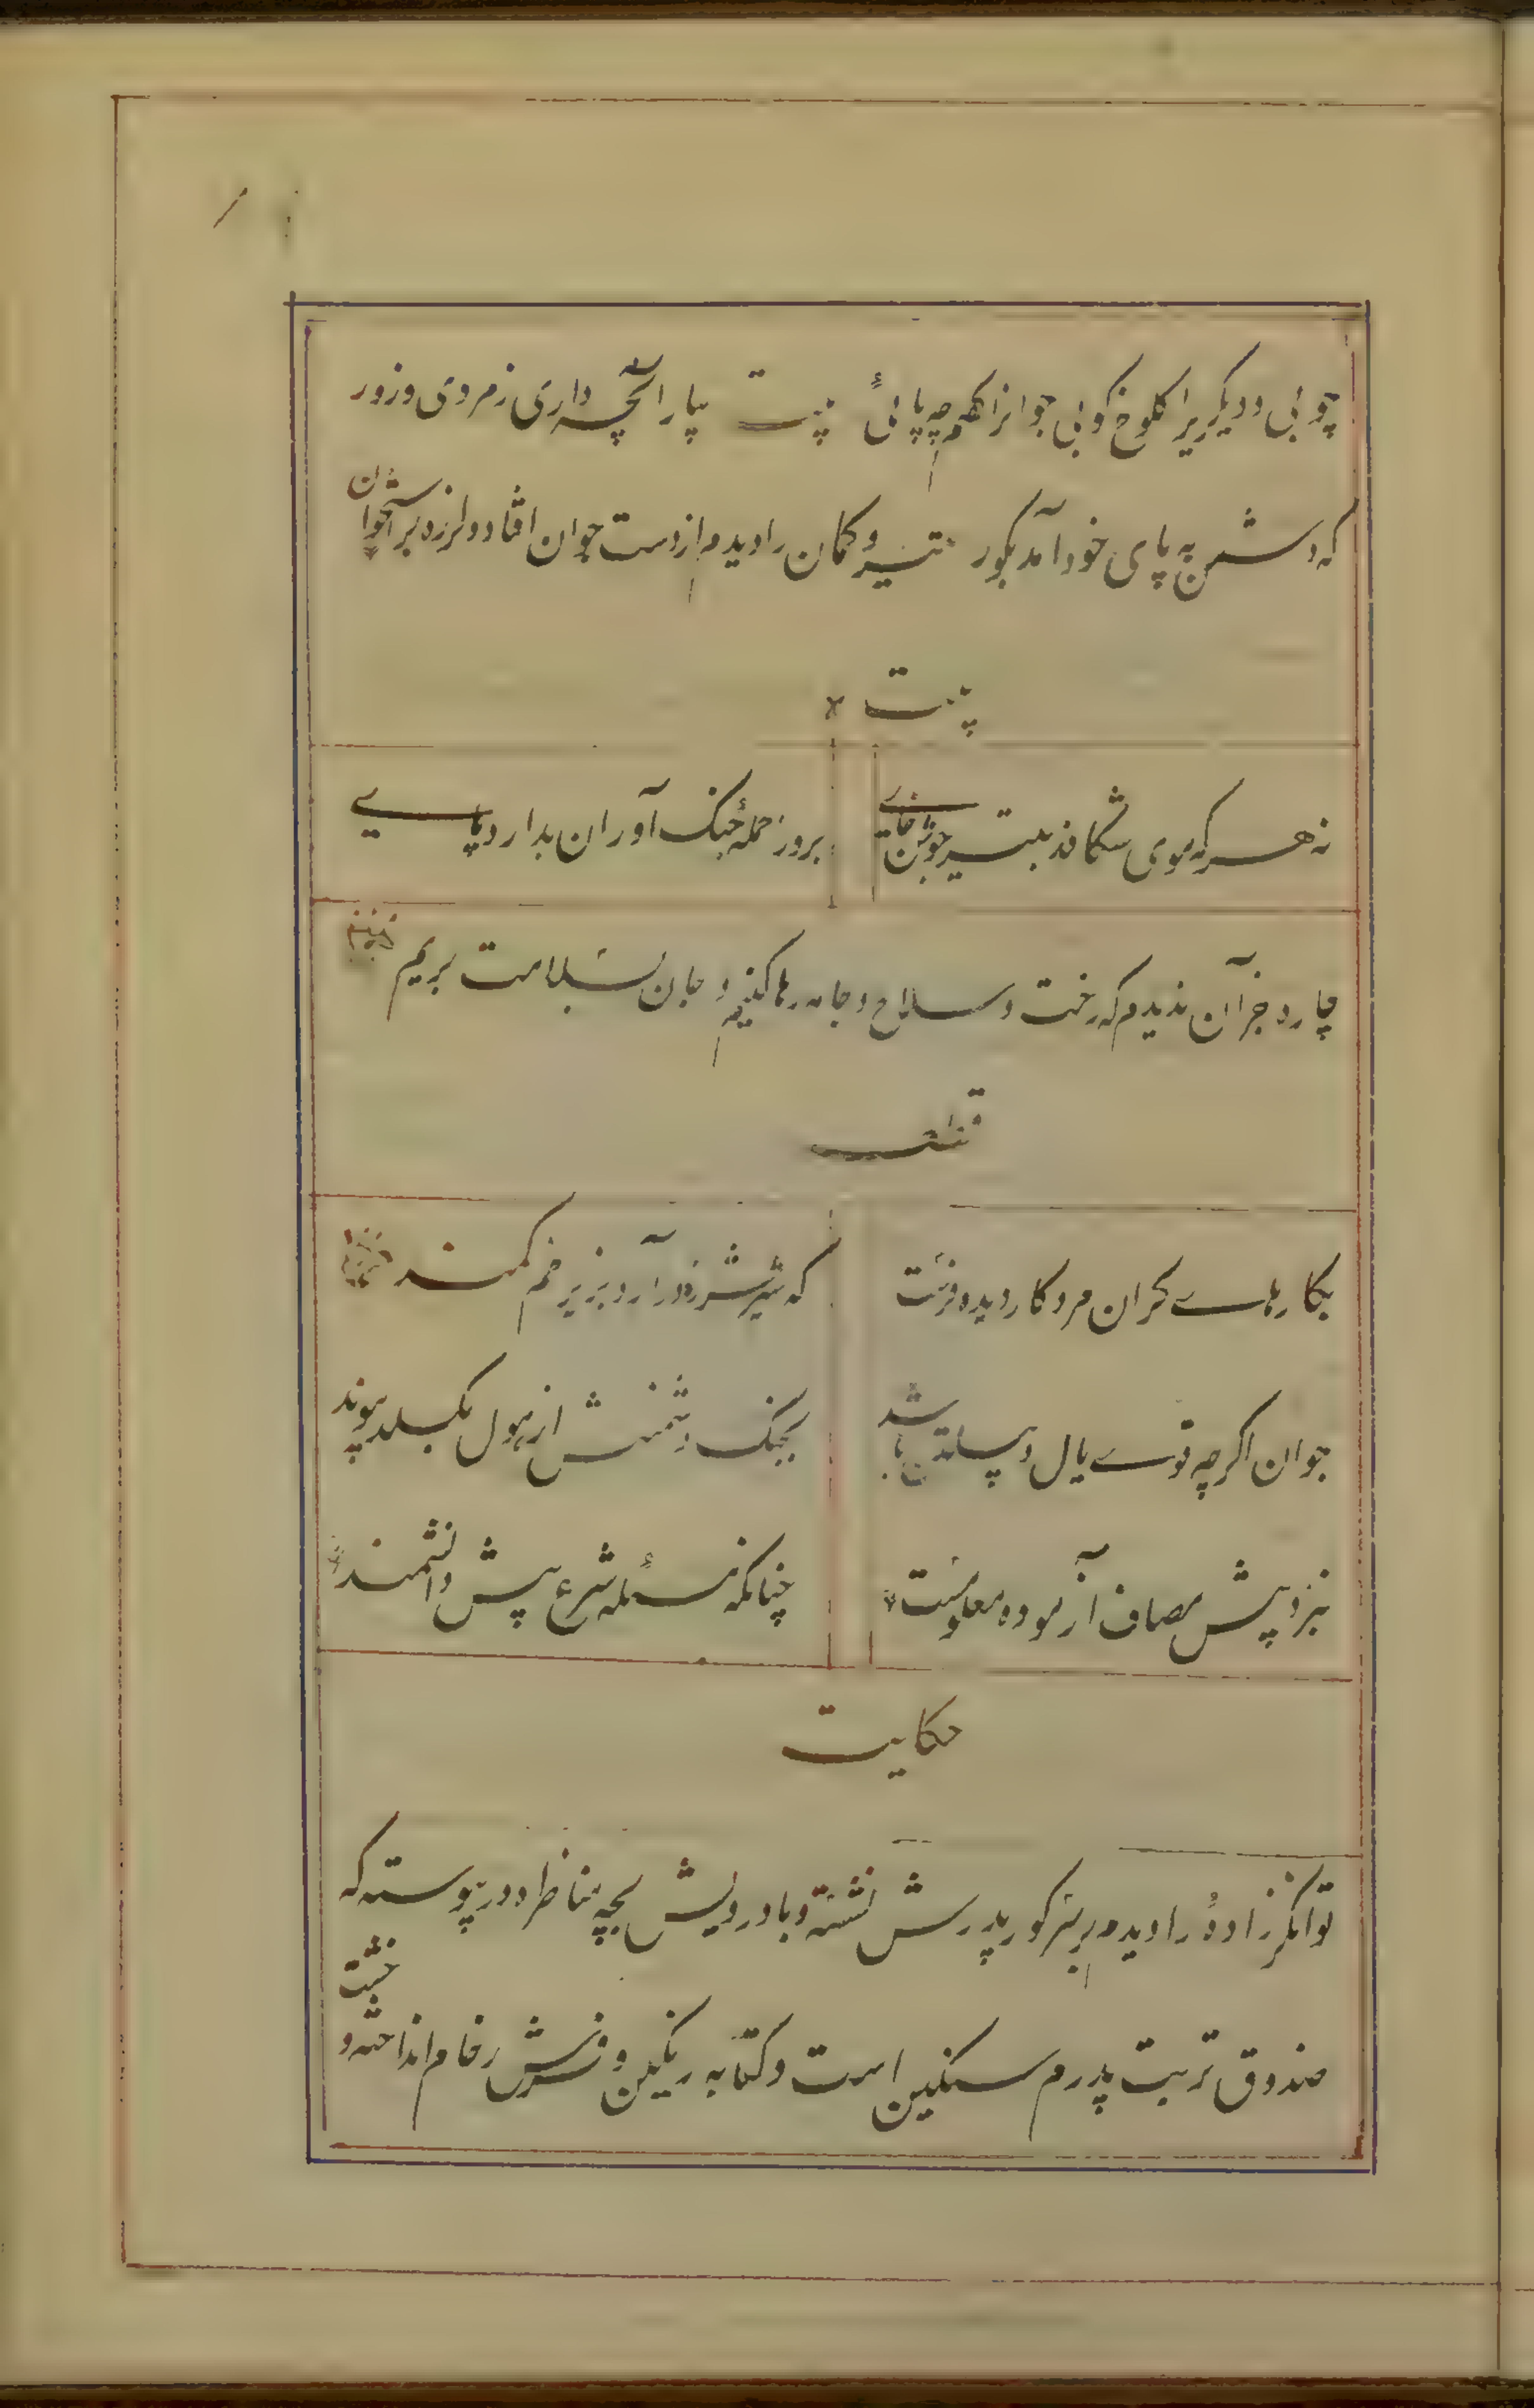 چوبی و دیگریرا کلوخ کوبی جوانرا گفتم چه پائی بیت بیار آنچه داری ز مردی و زور
که دشمن به پای خود آمد بکور تیر و کمان را دیدم از دست جوان افتاد و لرزه بر استخوان
بیت
نه هر که موی شکافد بتیر جوشن خای بروز حمله جنک آوران بدارد پای
چاره جز آن ندیدم که رخت و سلاح و جامه رها کنیم و جان بسلامت بریم
قطعه
بکارهای کران مرد کار دیده فرست که شیر شرزه در آرد بزیر خم کمند
جوان اکرچه قوی یال و پیلتن باشد بجنک دشمنش از هول بکسلد پیوند
نبرد پیش مصاف آزموده معلومست چنانکه مسئله شرع پیش دانشمند
حکایت
توانکر زادهٔ را دیدم بر سر کور پدرش نشسته و با درویش بچه مناظره در پیوسته که
صندوق تربت پدرم سنکین است و کتابه رنکین و فرش رخام انداخته و خشت